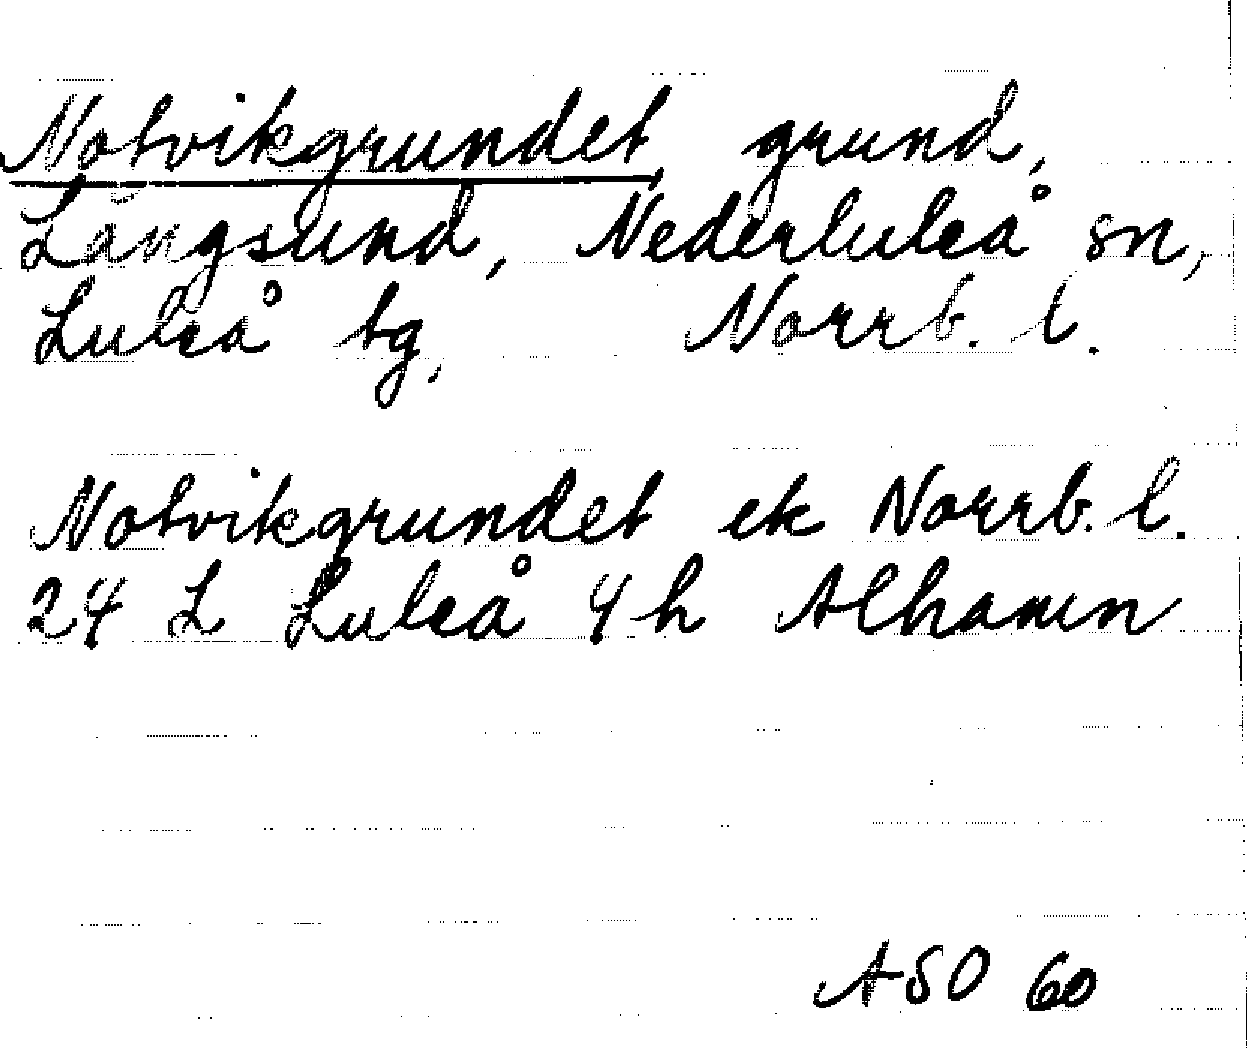 Notvikgrundet, grund,
Långsund, Nederluleå sn,
Luleå tg, Norrb. l.
Notvikgrundet ek Norrb. l.
24 L Luleå 4 h Alhamn
ASO 60